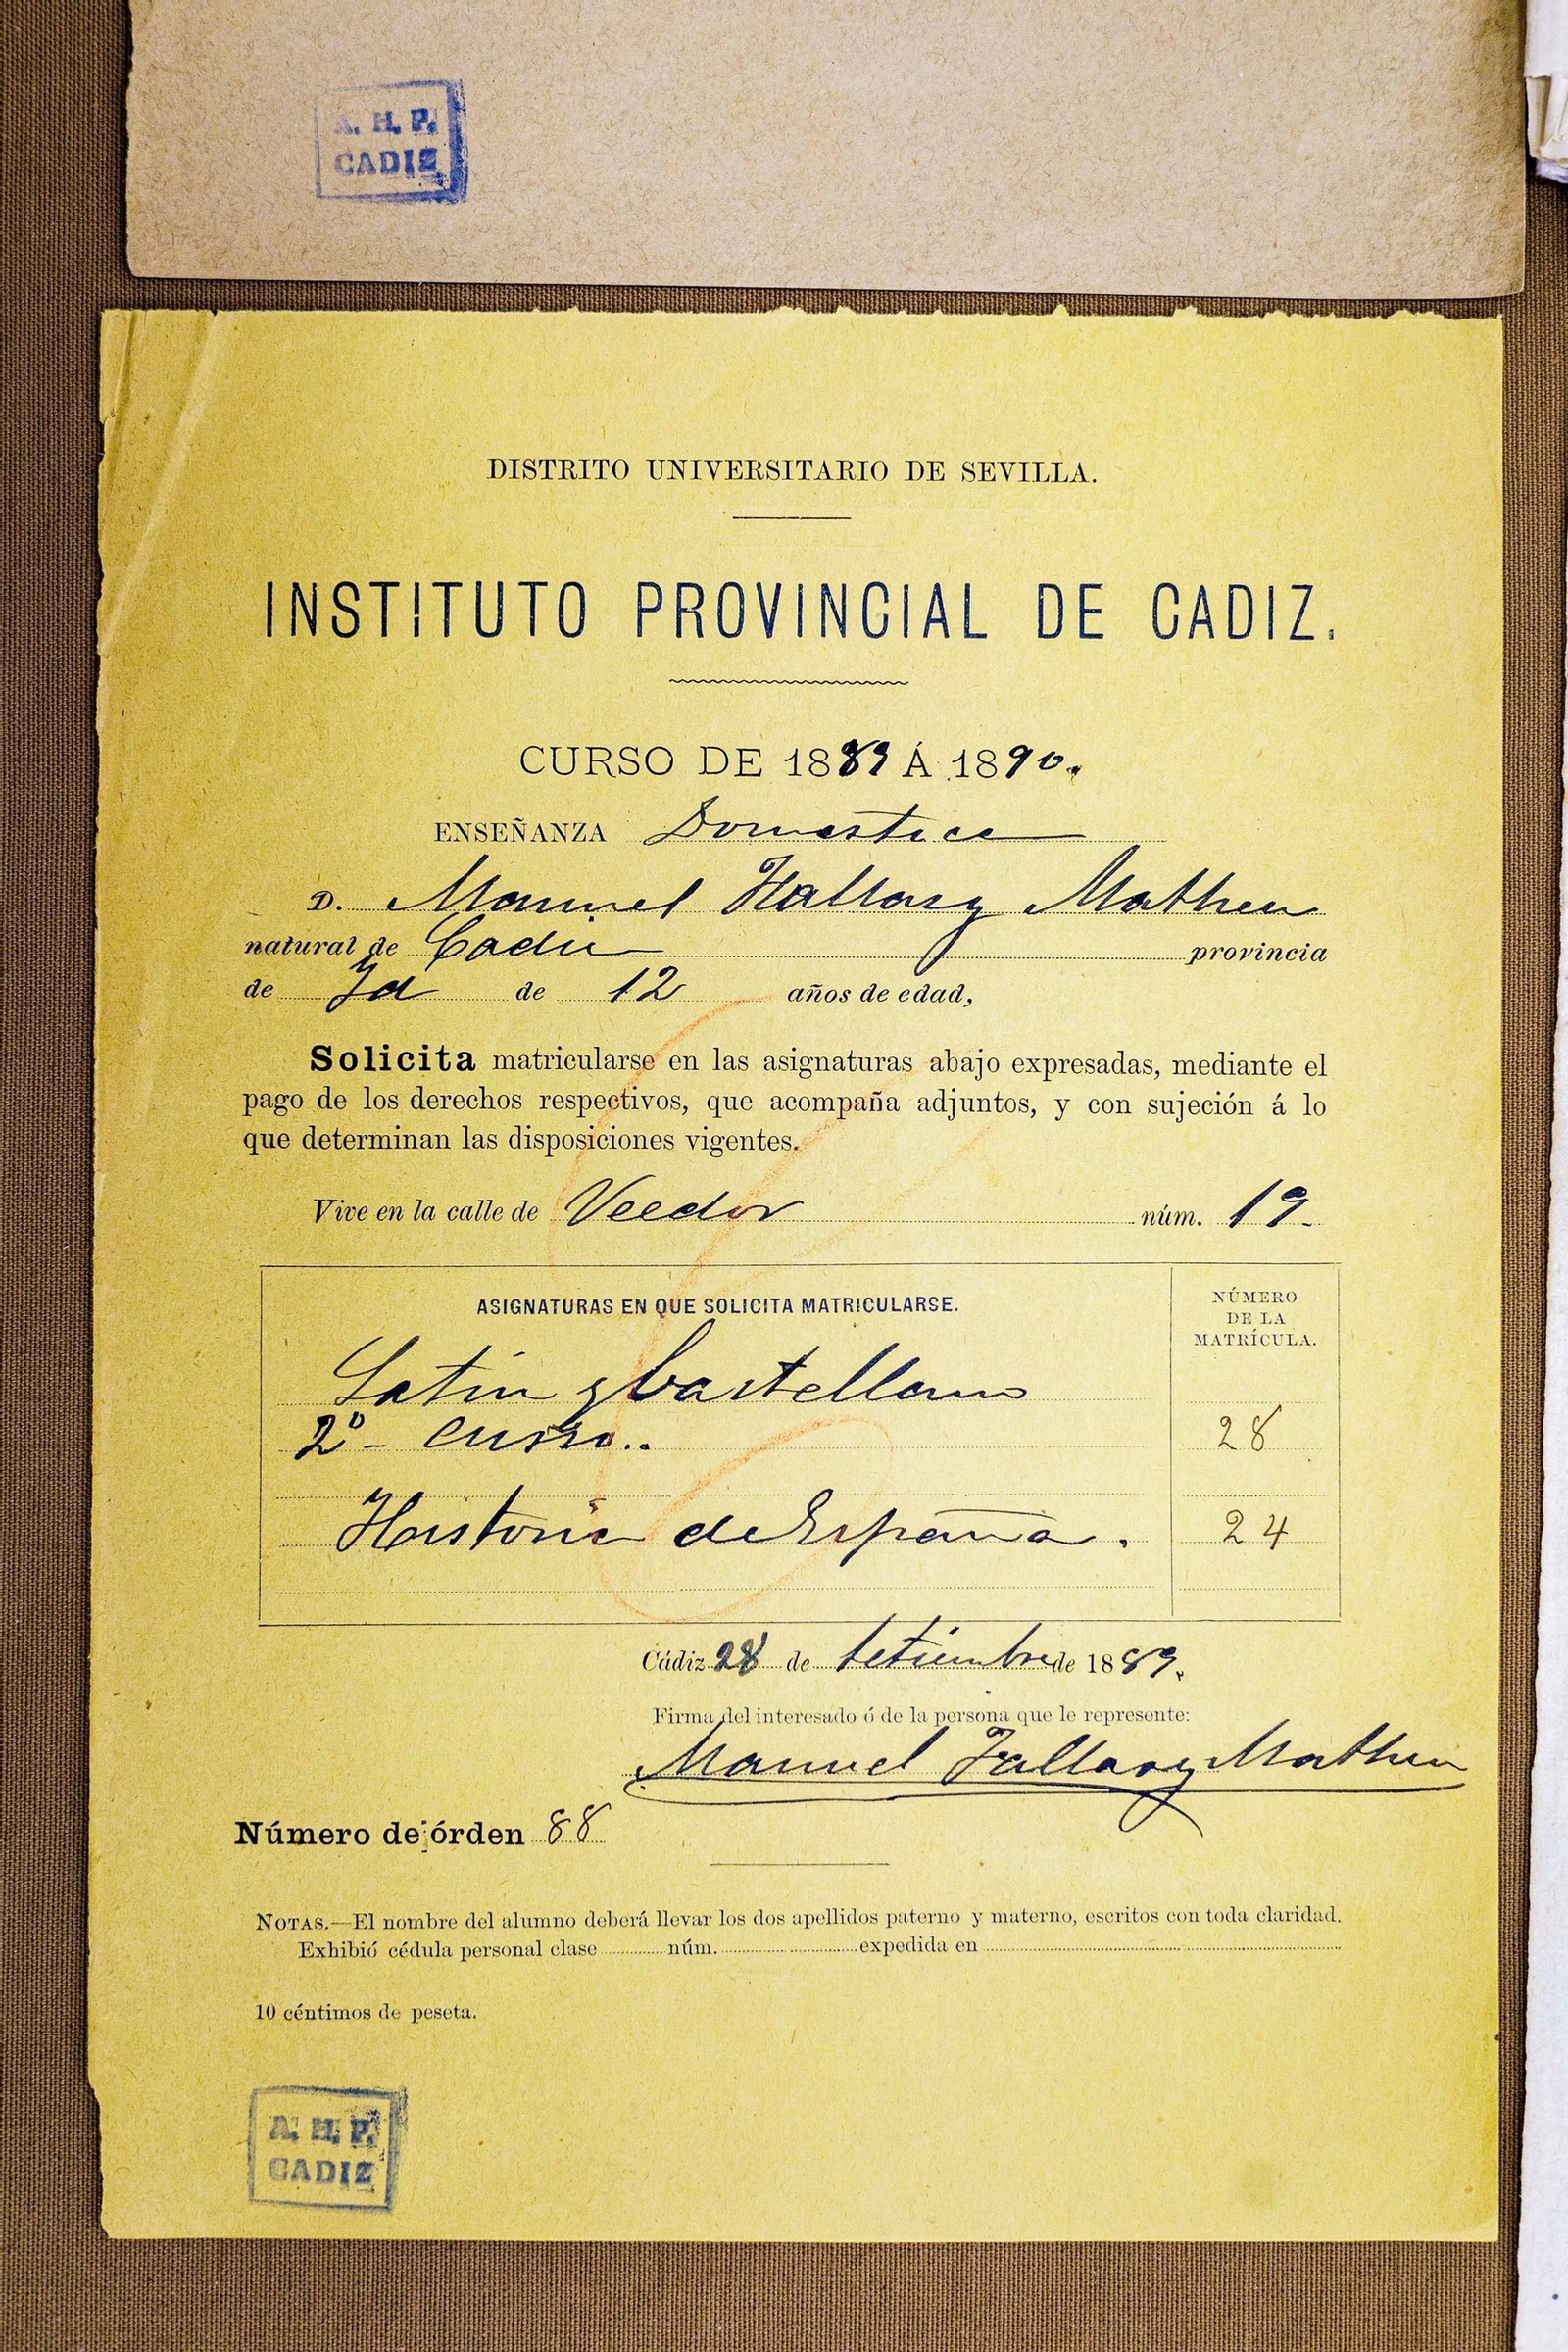 A. H. P.
CADIZ
DISTRITO UNIVERSITARIO DE SEVILLA.
INSTITUTO PROVINCIAL DE CADIZ.
CURSO DE 1889 Á 1890.
ENSEÑANZA Domestica
D. Manuel Falla y Matheu
natural de Cadiz provincia
de Id de 12 años de edad,
Solicita matricularse en las asignaturas abajo expresadas, mediante el
pago de los derechos respectivos, que acompaña adjuntos, y con sujeción á lo
que determinan las disposiciones vigentes.
Vive en la calle de Veedor núm. 19.
ASIGNATURAS EN QUE SOLICITA MATRICULARSE.
NÚMERO
DE LA
MATRÍCULA.
Latin y Castellano
2º - curso.. 28
Historia de España. 24
Cádiz 28 de Setiembre de 1889.
Firma del interesado ó de la persona que le represente:
Manuel Falla y Matheu
Número de órden 88
NOTAS.—El nombre del alumno deberá llevar los dos apellidos paterno y materno, escritos con toda claridad.
Exhibió cédula personal clase núm. expedida en
10 céntimos de peseta.
A. H. P.
CADIZ